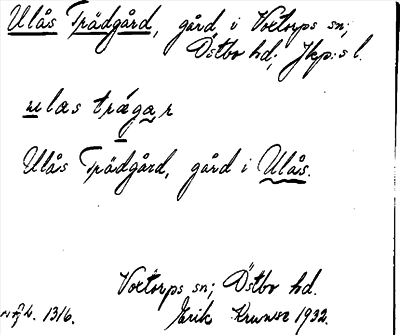 Ulås Trädgård, gård i Voxtorps sn;
Östbo hd; Jkp:s l.
ulas träga,r
Ulås Trädgård, gård i Ulås.
Voxtorps sn; Östbo hd.
1316. Erik 1932.